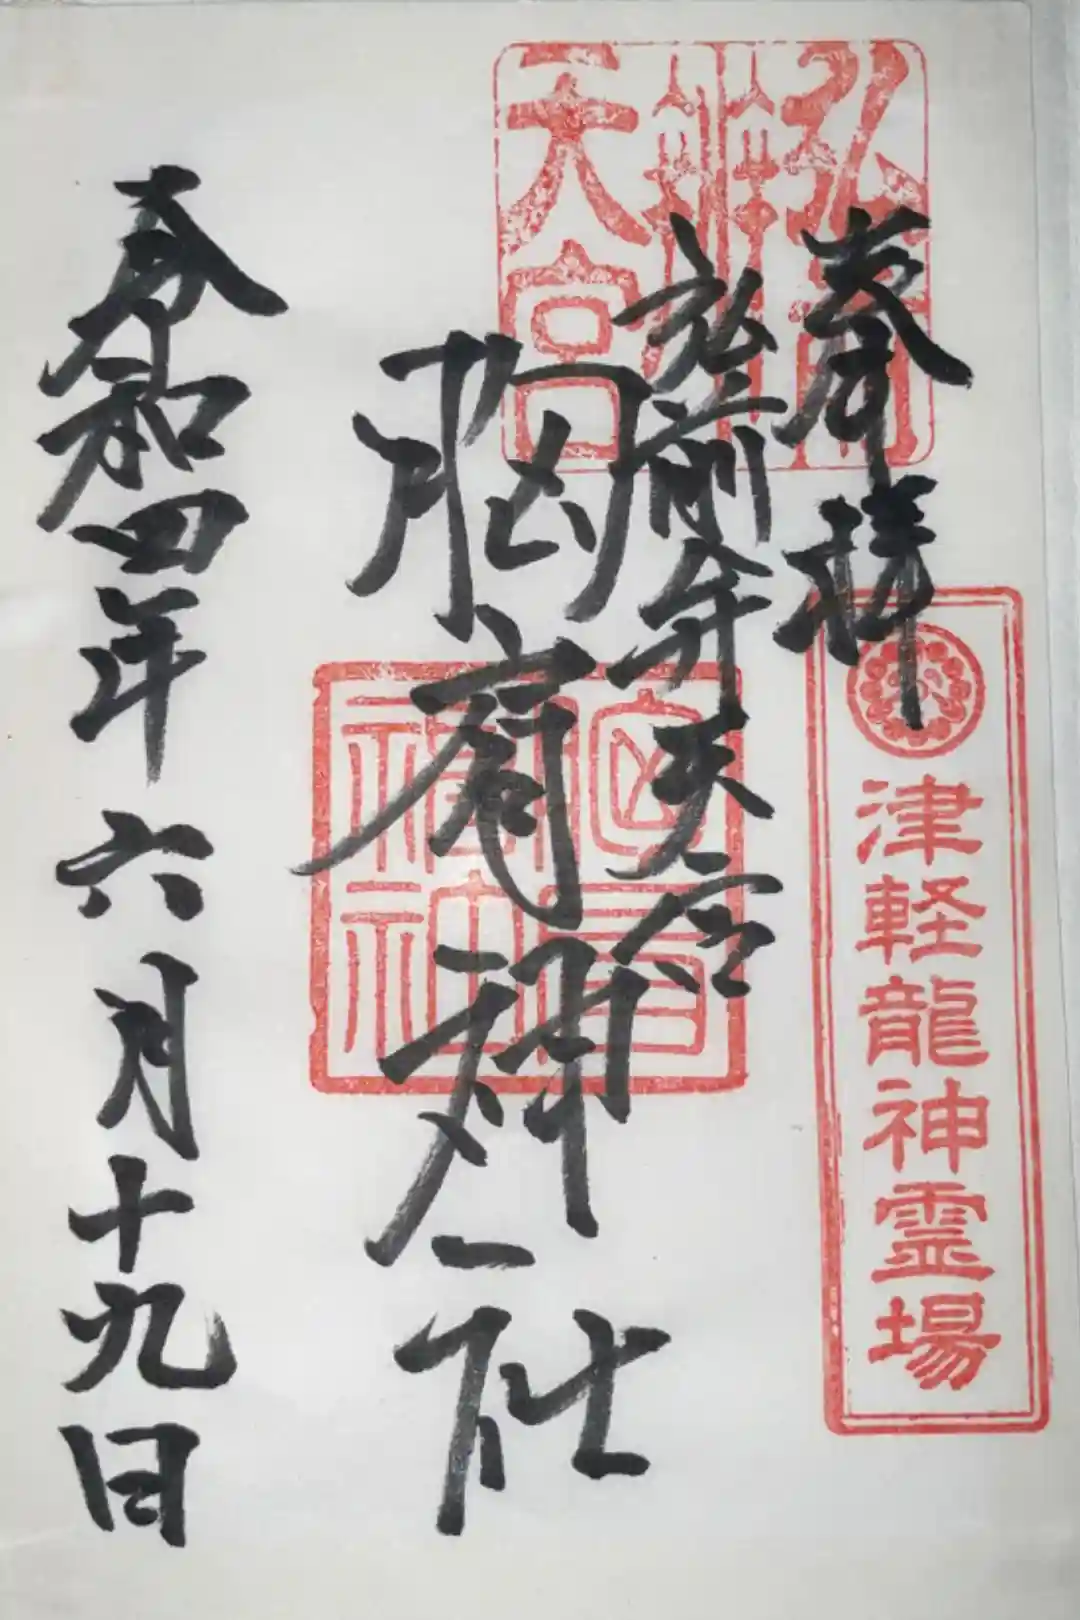 奉拝
弘前弁天宮
胸肩神社
令和四年六月十九日
弘前
辨
天宮
津軽龍神霊場